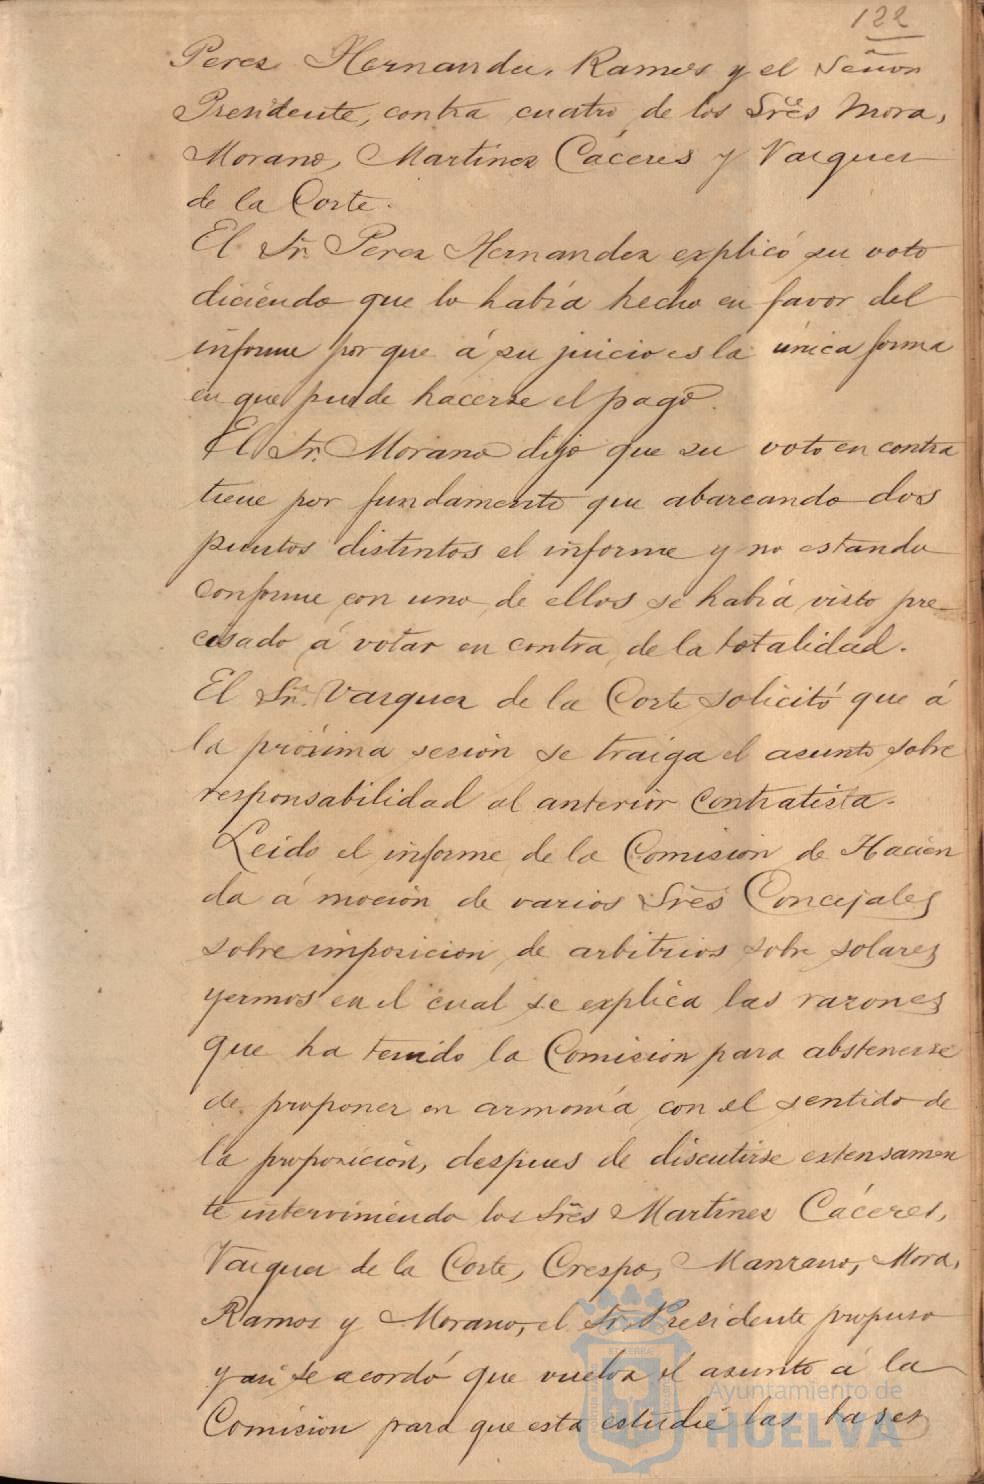 122
Perez Hernandez, Ramos y el Señor
Presidente, contra cuatro de los Sres Mora,
Morano, Martinez Cáceres y Vazquez
de la Corte.
El Sr. Perez Hernandez explicó su voto
diciendo que lo había hecho en favor del
informe porque á su juicio es la única forma
en que puede hacerse el pago.
El Sr. Morano dijo que su voto en contra
tiene por fundamento que abarcando dos
puntos distintos el informe y no estando
conforme con uno de ellos se había visto pre-
cisado á votar en contra de la totalidad.
El Sr. Vazquez de la Corte solicitó que á
la próxima sesión se traiga el asunto sobre
responsabilidad al anterior contratista.
Leido el informe de la Comisión de Hacien
da á moción de varios Sres Concejales
sobre imposicion de arbitrios sobre solares
yermos en el cual se explica las razones
que ha tenido la Comision para abstenerse
de proponer en armonía con el sentido de
la proposición, despues de discutirse extensamen
te interviniendo los Sres Martinez Cáceres,
Vazquez de la Corte, Crespo, Manzano, Mora,
Ramos y Morano, el Sr. Presidente propuso
y asi se acordó que vuelva el asunto á la
Comisión para que esta estudie las bases
Ayuntamiento de
HUELVA